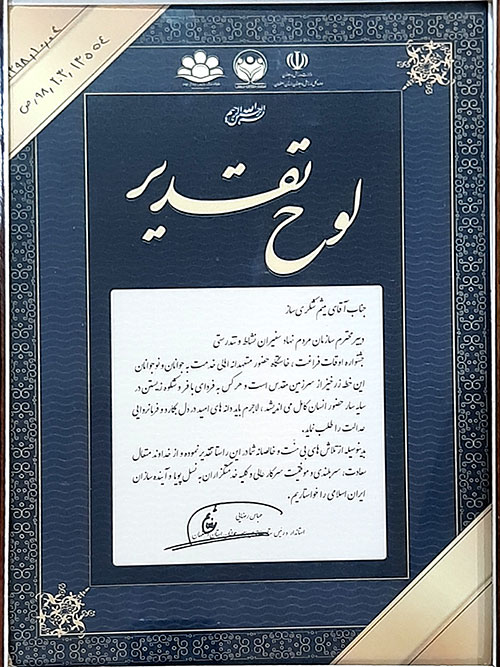 بسم الله الرحمن الرحیم
لوح تقدیر
جناب آقای میثم شکری ساز
دبیر محترم سازمان مردم نهاد سفیران نشاط و تندرستی
جشنواره اوقات فراغت، خاستگاه حضور متعهدانه اهالی خدمت به جوانان و نوجوانان
این خطه زرخیز از سرزمین مقدس است و هر کس به فردای با فر و شکوه زیستن در
سایه سار حضور انسان کامل می اندیشد، لاجرم باید دانه های امید در دل بکارد و فرمانروایی
عدالت را طلب نماید.
بدینوسیله از تلاش های بی منت و خالصانه شما در این راستا تقدیر نموده و از خداوند متعال
سعادت، سربلندی و موفقیت سرکار عالی و کلیه خدمتگزاران به نسل پویا و آینده سازان
ایران اسلامی را خواستاریم.
عباس رضایی
استاندار و رئیس